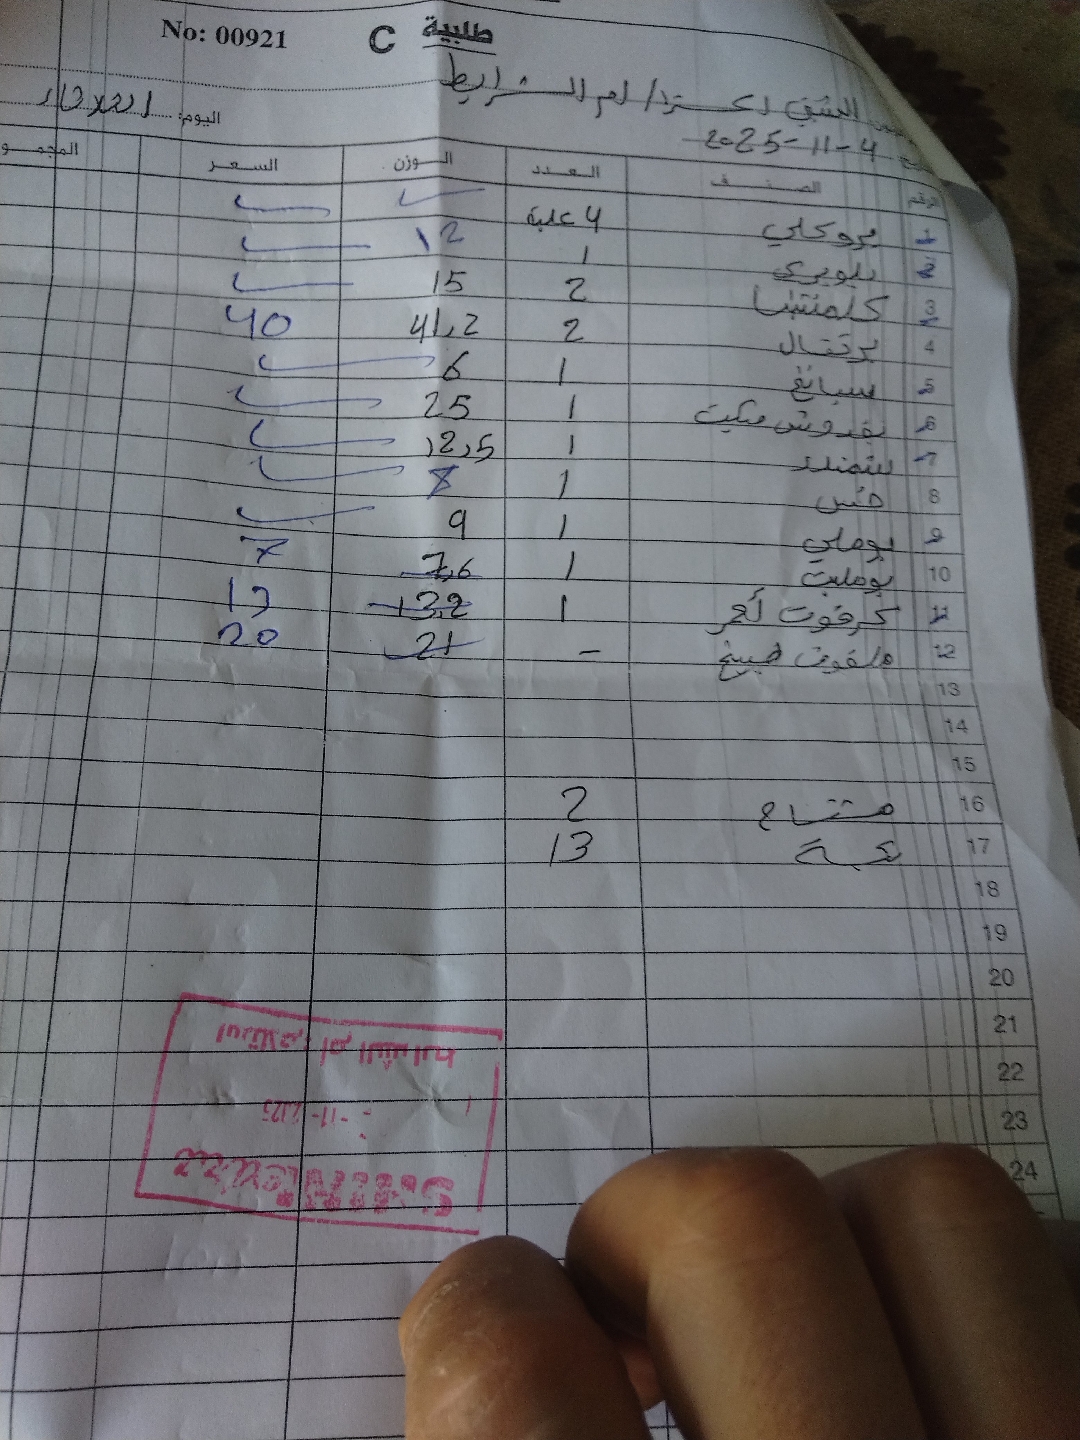 طلبية C No: 00921
اكسترا / ام الشرايط
2025-11-4
اليوم:
الرقم الصنف العدد الوزن السعر
1 بروكلي 4 علبة
2 بلوبيري 1 12
3 كلمنتينا 2 15
4 برتقال 2 41,2 40
5 سبانخ 1 6
6 1 25
7 1 12,5
8 خس 1 8
9 بوملي 1 9
10 بومليت 1 7,6 7
11 كرفوت أحمر 1 13,2 13
12 ملفوف - 21 20
13
14
15
16 مشتاح 2
17 عبة 13
18
19
20
21
22
23
24
استلام ام الشرايط
-11-2025